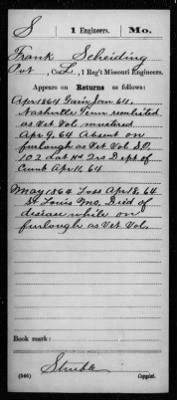 S | 1 Engineers. | Mo.
Frank Scheiding
Pvt, Co. L, 1 Reg't Missouri Engineers.
Appears on Returns as follows:
Apr 1864 Gain Jan 64.
Nashville Tenn reenlisted
as Vet Vol mustered
Apr 9, 64 Absent on
furlough as Vet Vol S.O.
102 Hd Qrs Dept of
Cumb Apr 11, 64
May 1864 Loss Apr 18, 64
St Louis Mo, Died of
disease while on
furlough as Vet Vol.
Book mark:
(546) Copyist.